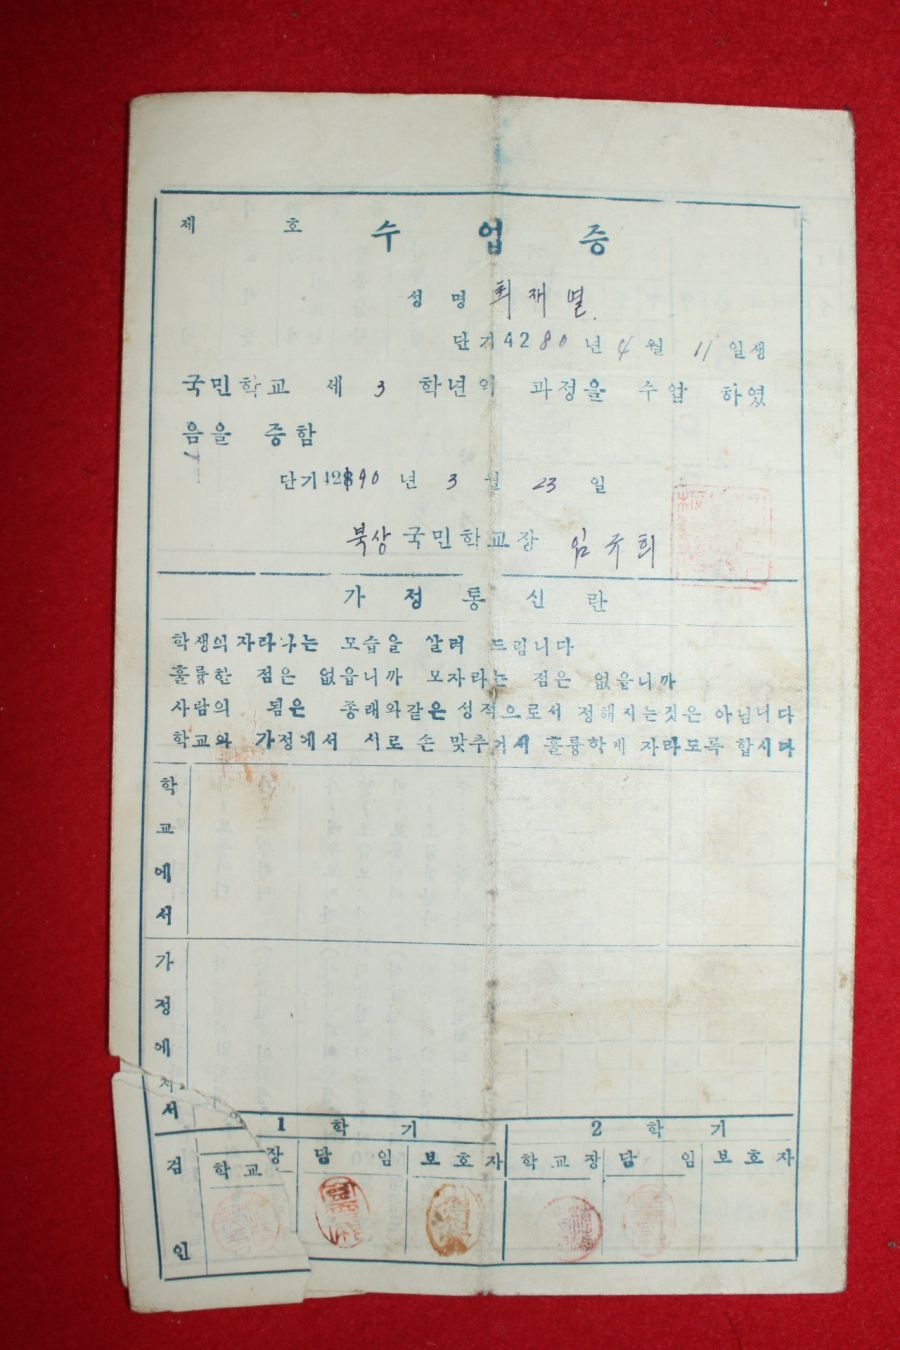 제 호 수 업 증
성 명 최재열
단기 4280 년 4 월 11 일생
국민학교 제 3 학년의 과정을 수업 하였
음을 증함
단기 4290 년 3 월 23 일
북상 국민학교장 임규희
가 정 통 신 란
학생의 자라나는 모습을 살려 드립니다
훌륭한 점은 없읍니까 모자라는 점은 없읍니까
사람의 됨은 종래와같은 성적으로서 정해지는것은 아닙니다
학교와 가정에서 서로 손 맞추어서 훌륭하게 자라도록 합시다
학교에서
가정에서
서
1 학 기 2 학 기
검인 학교장 담 임 보호자 학교장 담 임 보호자